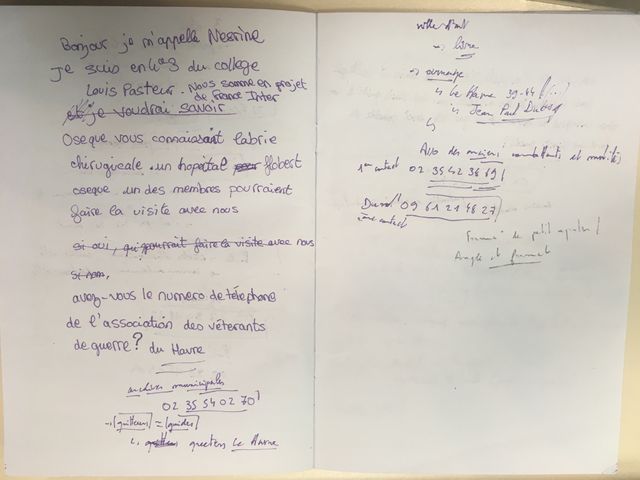 Bonjour je m'appelle Nesrine
Je suis en 4°3 du collège
Louis Pasteur. Nous somme en projet
de France Inter
et je voudrai savoir
Oseque vous connaissait l'abrie
chirugicale . un hopital flobert
oseque . un des membres pourraient
faire la visite avec nous
si oui, qui pourrait faire la visite avec nous
si non,
avez-vous le numero de téléphone
de l'association des véterants
de guerre? du Havre
archives municipales
02 35 54 02 70
= guides
Le Havre
→ livre
→ ouvrage
↳ Le Havre 39-44 (...)
↳ Jean Paul
Asso des anciens combattants et
1er contact 02 35 42 36 69
09 61 21 46 27
2ème contact
de petit
Angle et